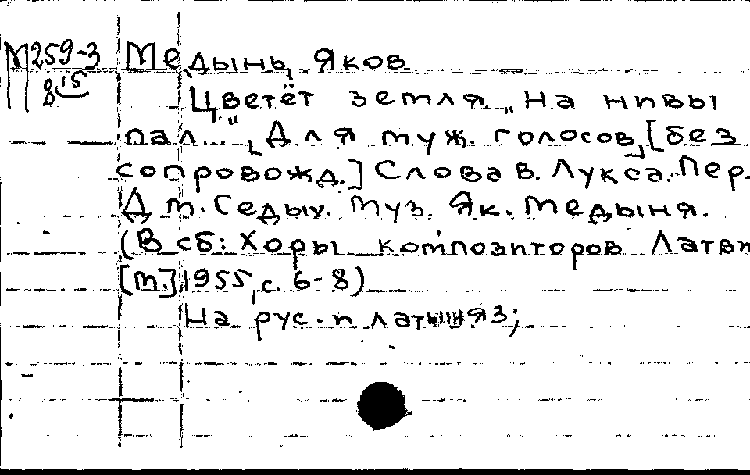 М259-3 Медынь, Яков
8 15 Цветёт земля. „На нивы
пал..." [Для муж. голосов, [без
сопровожд.] Слова В. Лукса. Пер.
Дм. Седых. Муз. Як. Медыня.
(В сб: Хоры композиторов Латви
[М.], 1955, с. 6-8)
На рус. и латыш яз;